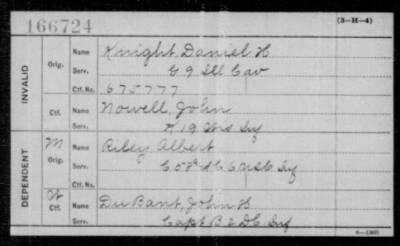 166724
(3-H-4)
INVALID
Orig.
Name Knight, Daniel H
Serv. G 9 Ill Cav
Ctf. No. 675777
Ctf.
Name Nowell, John
Serv. K 19 Wis Inf
DEPENDENT
M
Orig.
Name Riley Albert
Serv. C 6 Inf
Ctf.
Name DuBant, John H
Serv. Capt B 2 DC Inf